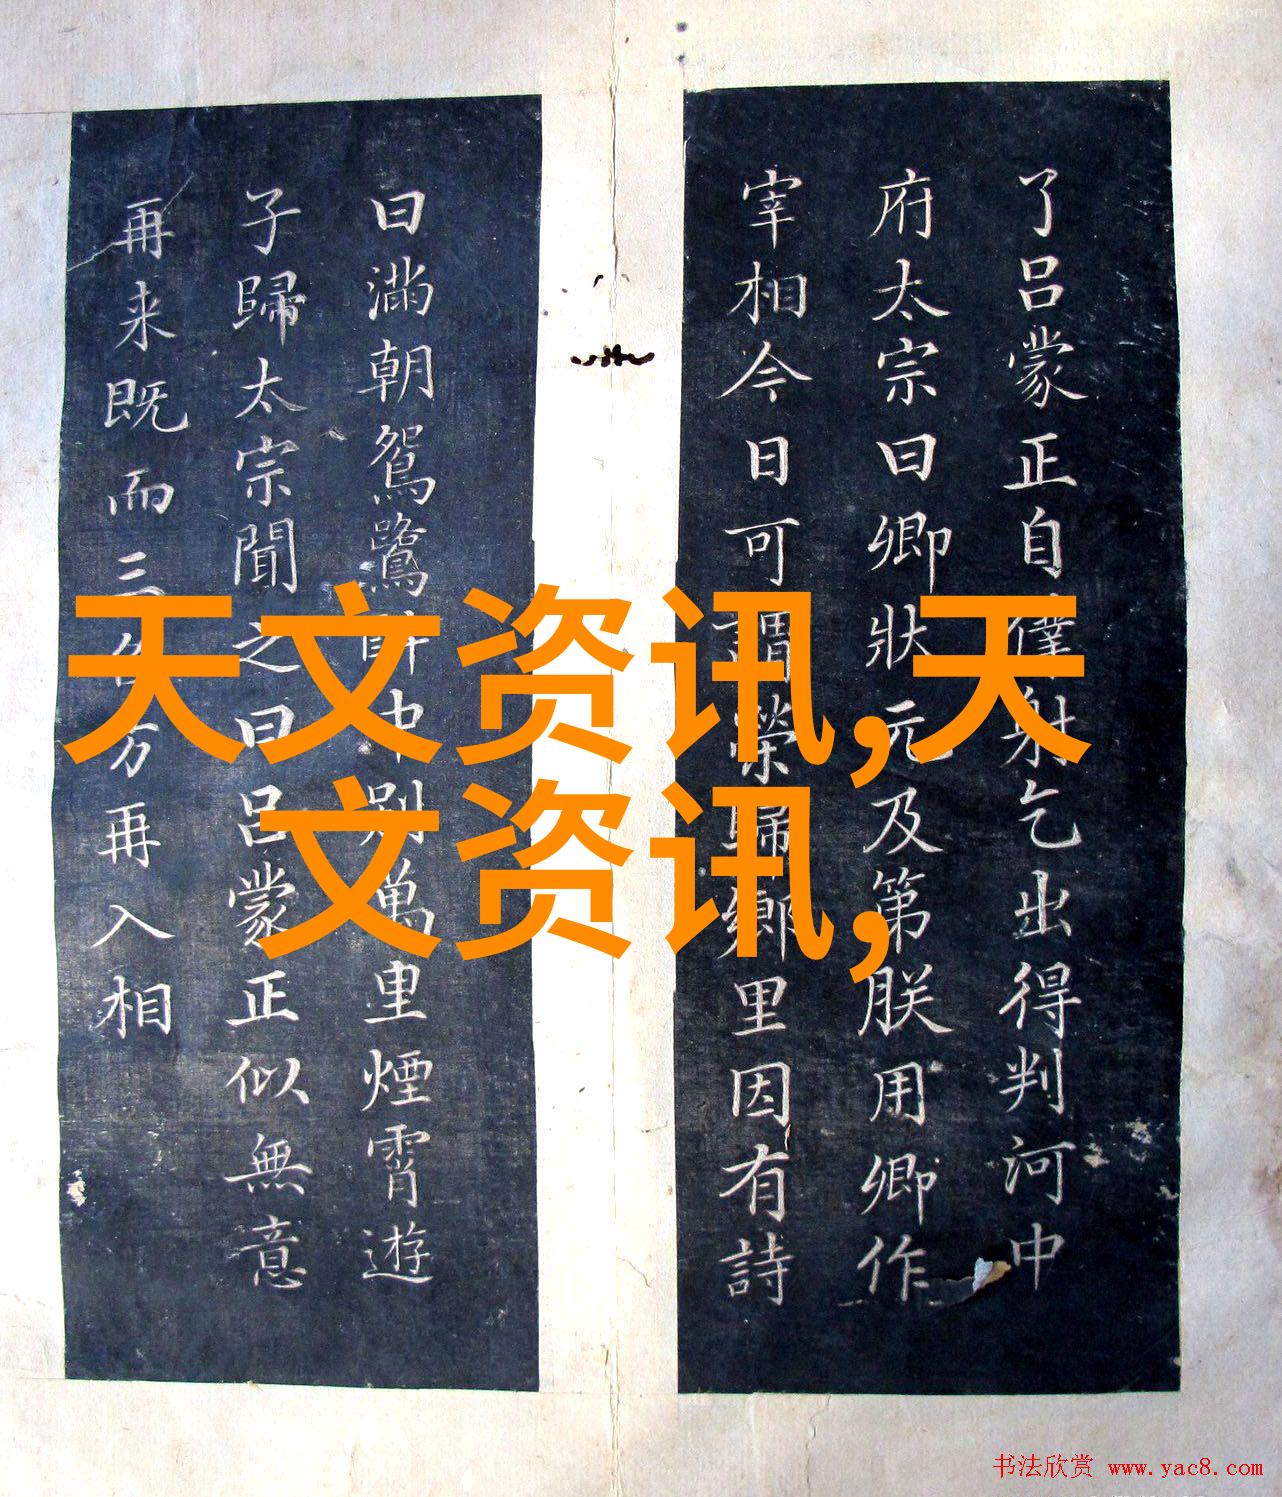 了吕蒙正自僕射乞出得判河中
府太宗曰卿狀元及第朕用卿作
宰相今日可謂榮歸鄉里因有詩
曰滿朝鴛鷺 中别萬里煙霄遊
子歸太宗聞之曰吕蒙正似無意
再来既而三 方再入相
天文资讯,天
文资讯,
书法欣赏 www.yac8.com